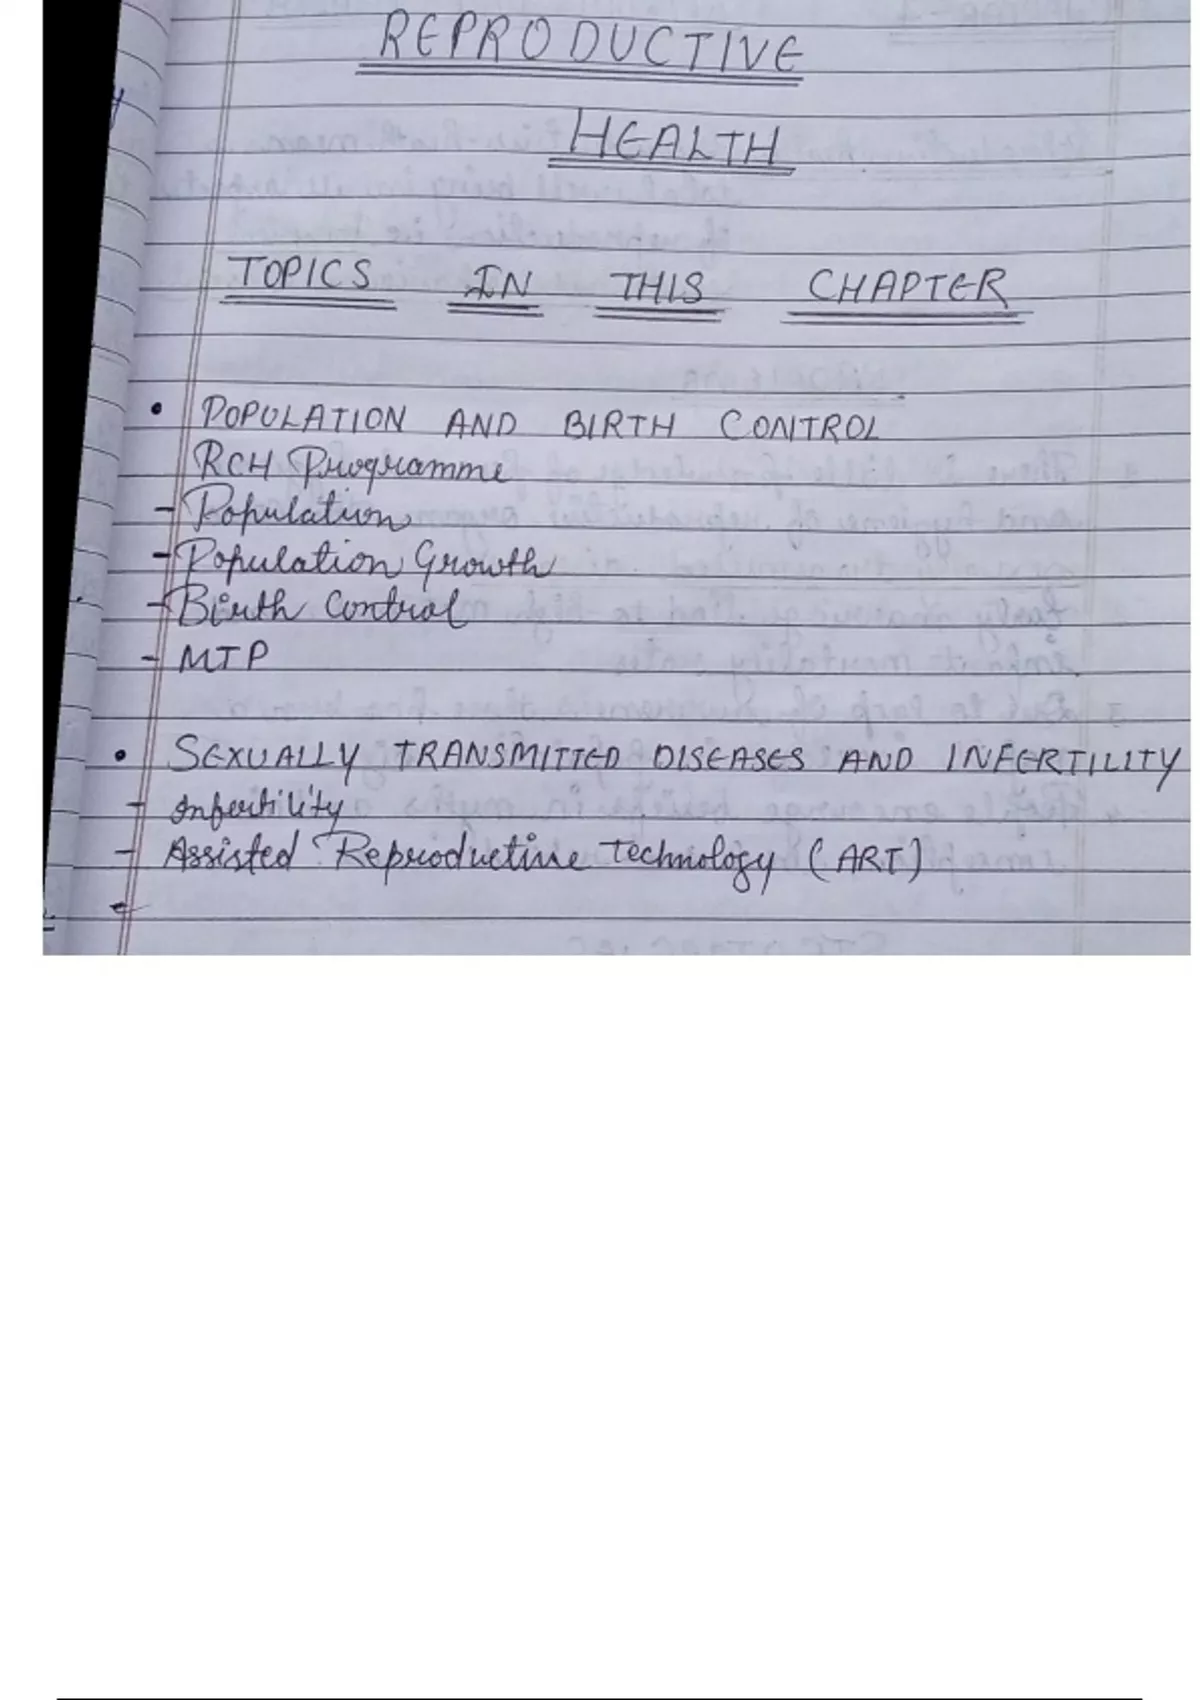 REPRODUCTIVE
HEALTH
TOPICS IN THIS CHAPTER
• POPULATION AND BIRTH CONTROL
RCH Programme
- Population
- Population Growth
- Birth Control
- MTP
• SEXUALLY TRANSMITTED DISEASES AND INFERTILITY
- Infertility
- Assisted Reproductive Technology (ART)